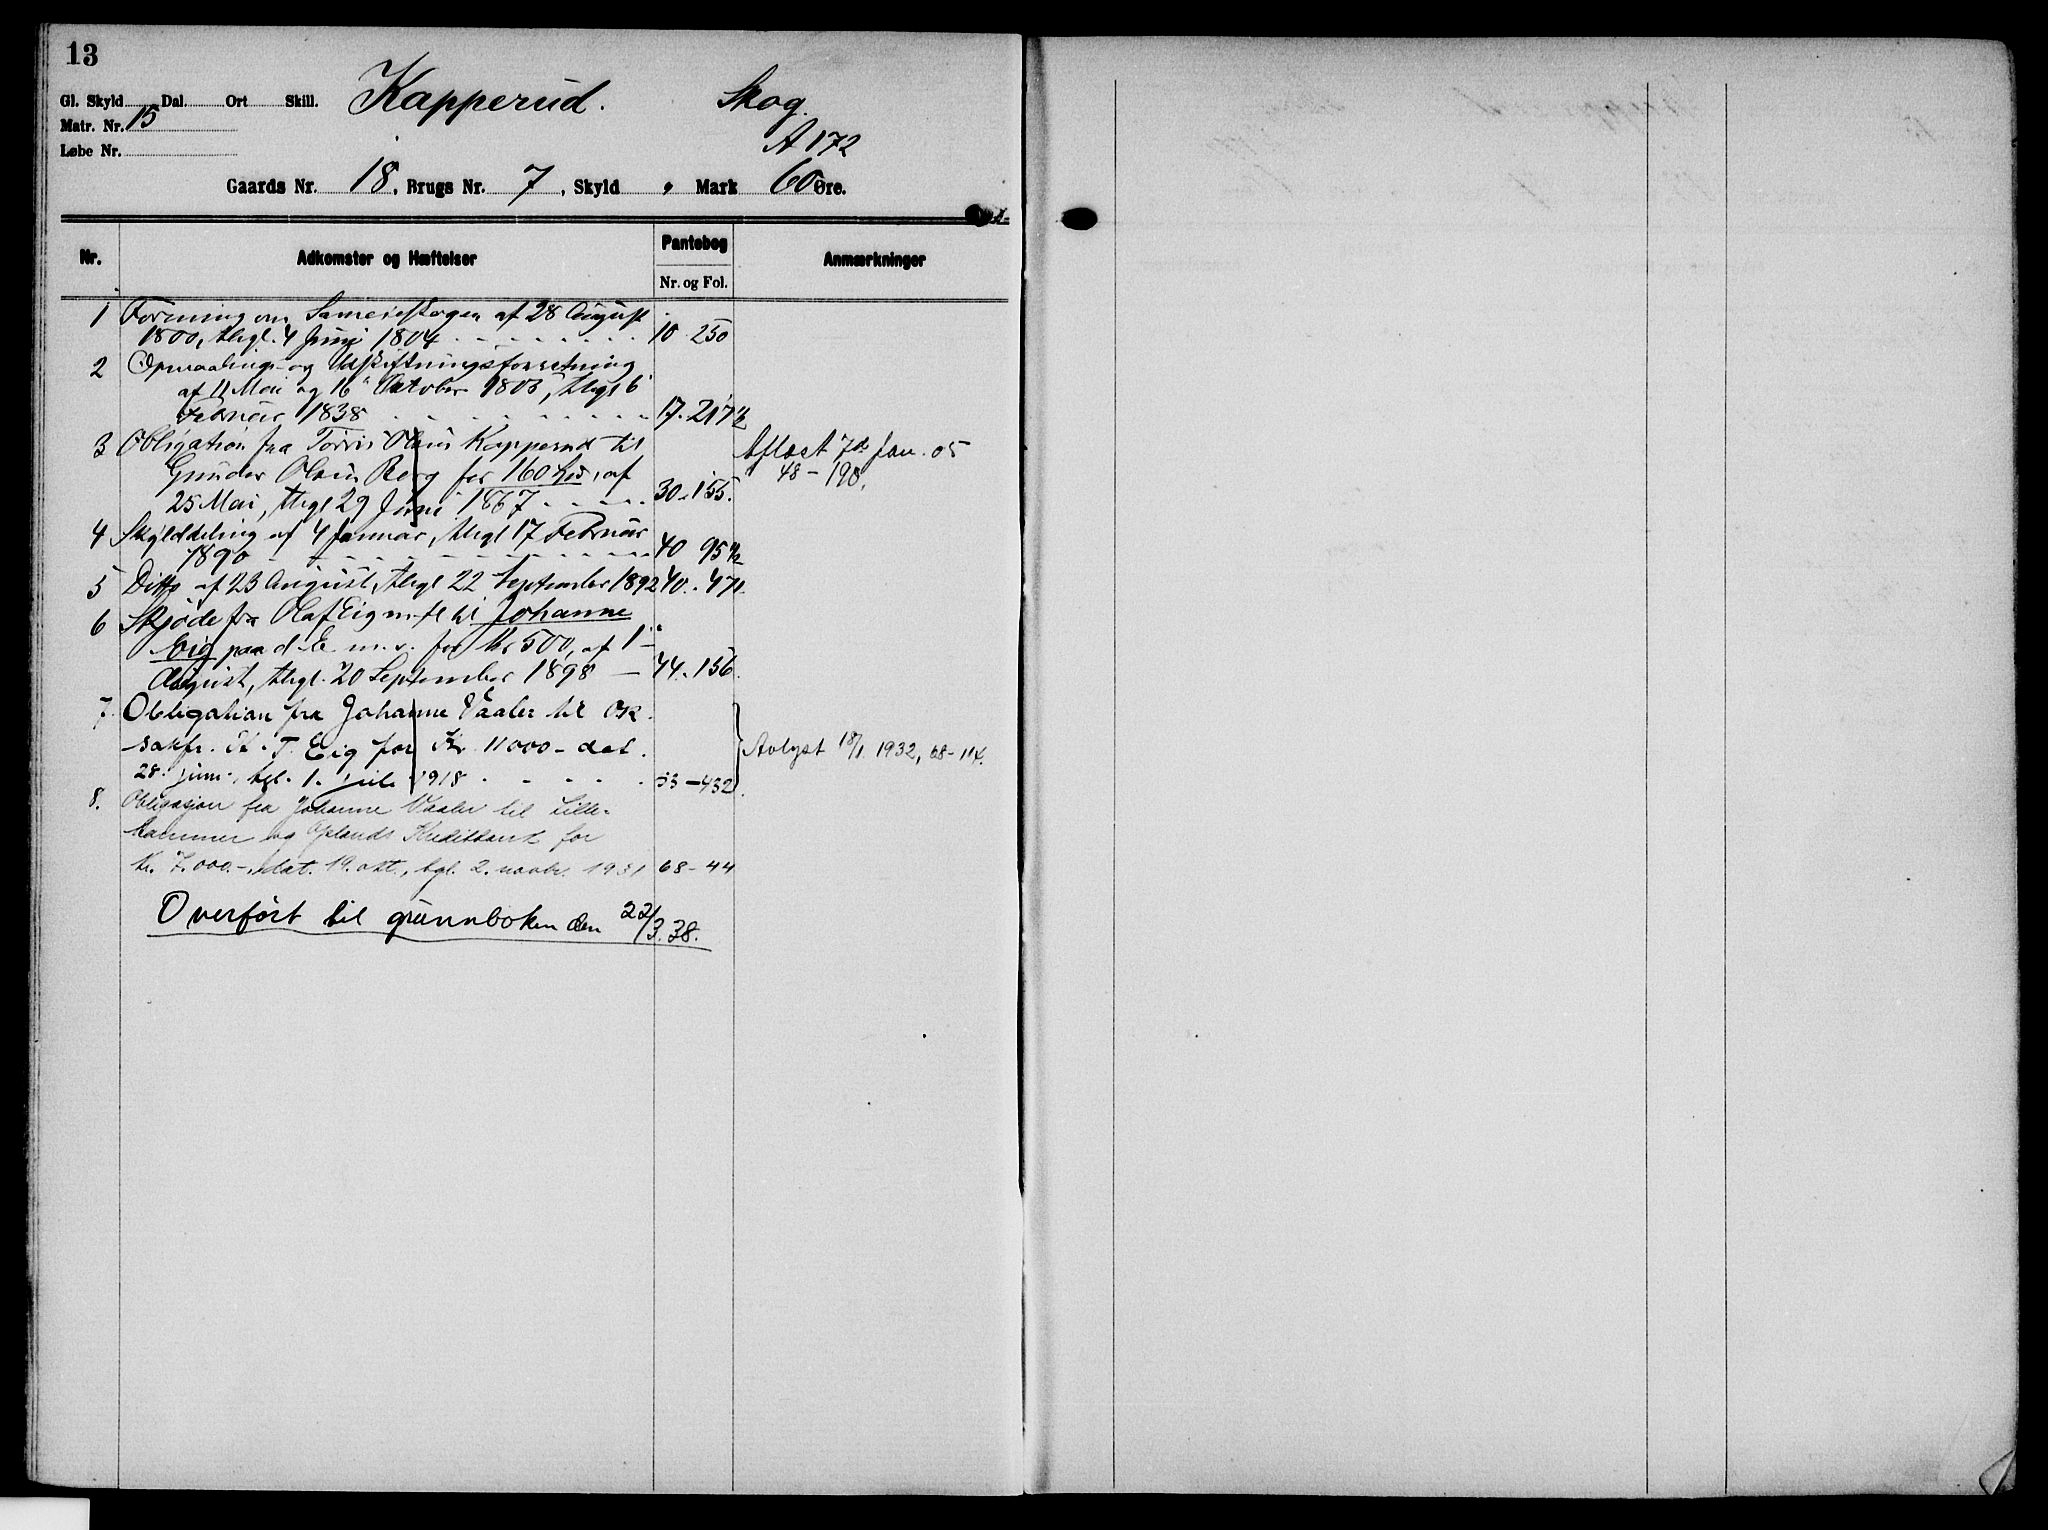 13
Gl. Skyld Dal. Ort Skill. Kapperud. Skog.
Matr. Nr. 15
A 172
Løbe Nr.
Gaards Nr. 18, Brugs Nr. 7, Skyld Mark 60 Øre.
Nr. Adkomster og Hæftelser Pantebog Anmærkninger
Nr. og Fol.
1 Forening om Sameieskogen af 28 August
1800, thgl. 4 Juni 1804 10 250
2 Opmaalings- og Udskiftningsforretning
af 11 Mai og 16 Oktober 1803, thgl 6
Februar 1838 17. 217
3 Obligation fra Torris Olsen Kapperud til
Gunder Olsen Berg for 160 , af
25 Mai, thgl 29 Juni 1867 30. 155.
Aflæst 7de Jan. 05
48 - 198.
4 Skylddeling af 4 Januar, thgl 17 Februar
1890 40 95
5 Ditto af 23 August, thgl 22 September 1892 40. 471.
6 Skjøde fra Olaf Eig m.fl. til Johanne
Eig paa d. E. m. v. for Kr 500, af 1
August, thgl. 20 September 1898 44. 156.
7. Obligation fra Johanne Vaaler til Ok.
sakfr. T. Eig for Kr. 11000 - dat.
28. juni, tgl. 1. juli 1918 53-432.
Avlyst 18/1 1932, 68-114.
8. Obligasjon fra Johanne Vaaler til Lille-
hammer og Oplands Kreditbank for
Kr. 7.000.-, dat. 19. okt., tgl. 2. novbr. 1931 68-44
Overført til grunnboken den 22/3.38.